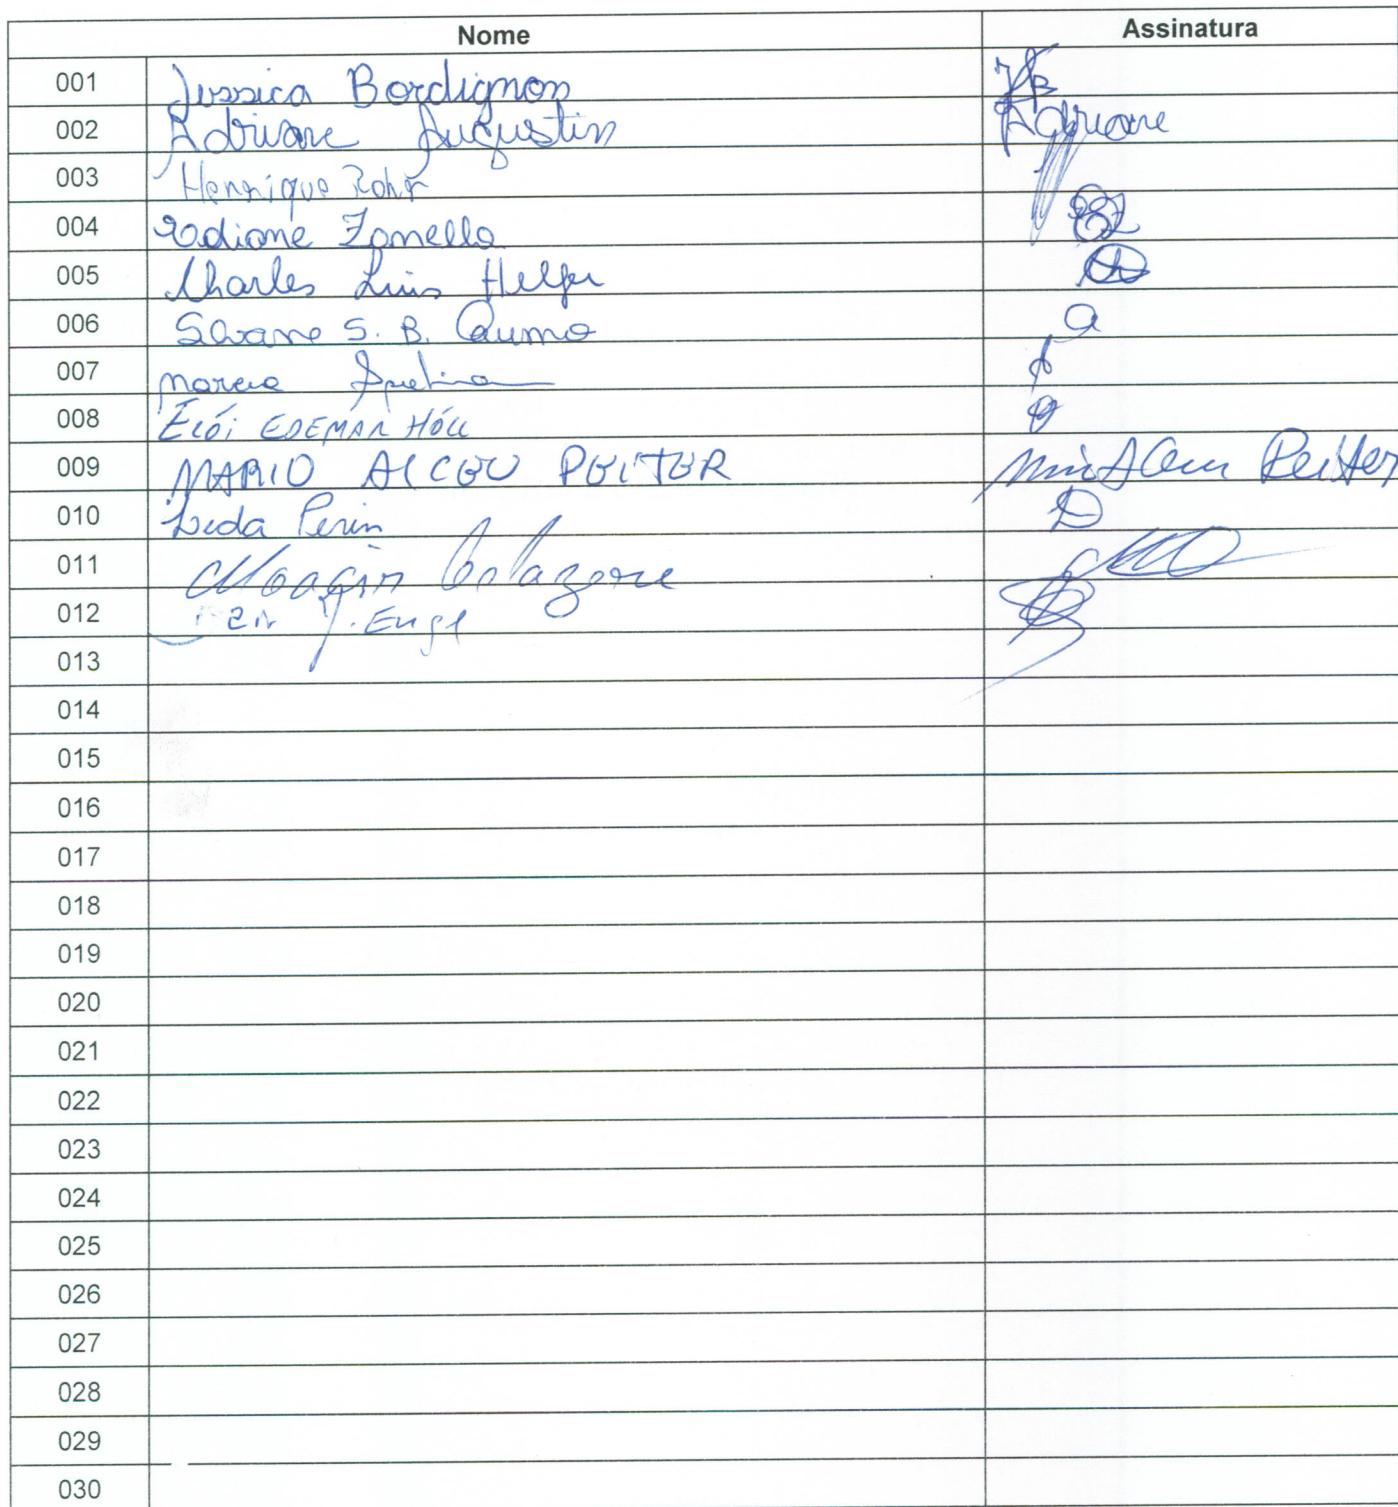 Nome Assinatura
001 Jessica Bordignon JB
002 Adriane Augustin Adriane
003 Henrique Rohr
004 Ediane Zanella
005 Charles Luis Helfer
006 Silvane S. B. Caumo
007 Marcia
008 Elói EDEMAR HÖLL
009 MARIO ALCEU PEITER Mario Alceu Peiter
010 Leda Perin
011 Moacir
012
013
014
015
016
017
018
019
020
021
022
023
024
025
026
027
028
029
030